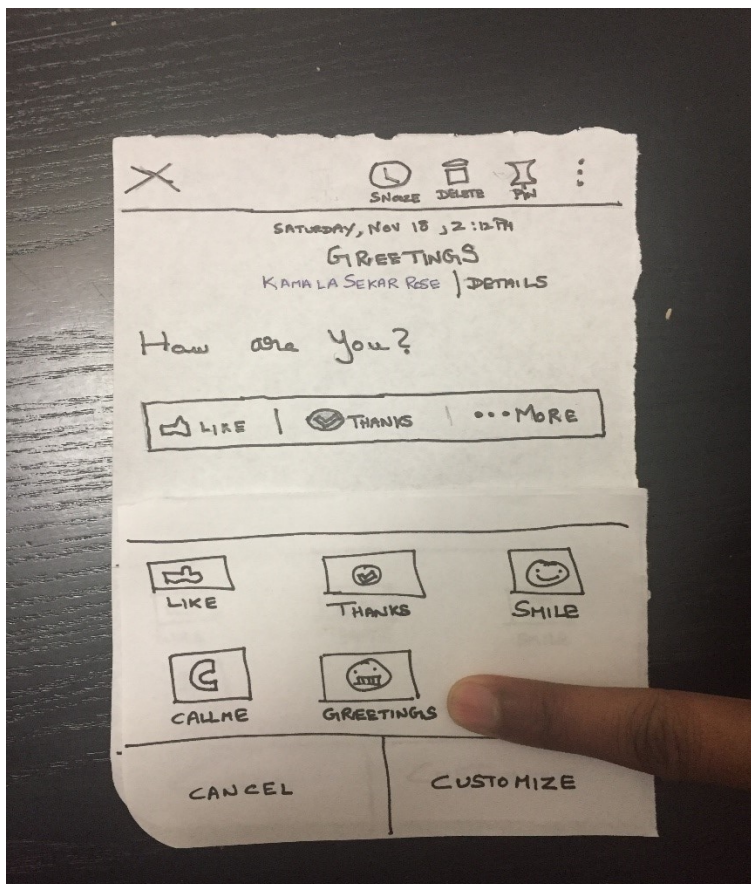 SNOOZE DELETE PIN
SATURDAY, NOV 18, 2:12PM
GREETINGS
KAMALA SEKAR ROSE | DETAILS
How are You?
LIKE | THANKS | ...MORE
LIKE THANKS SMILE
CALLME GREETINGS
CANCEL CUSTOMIZE